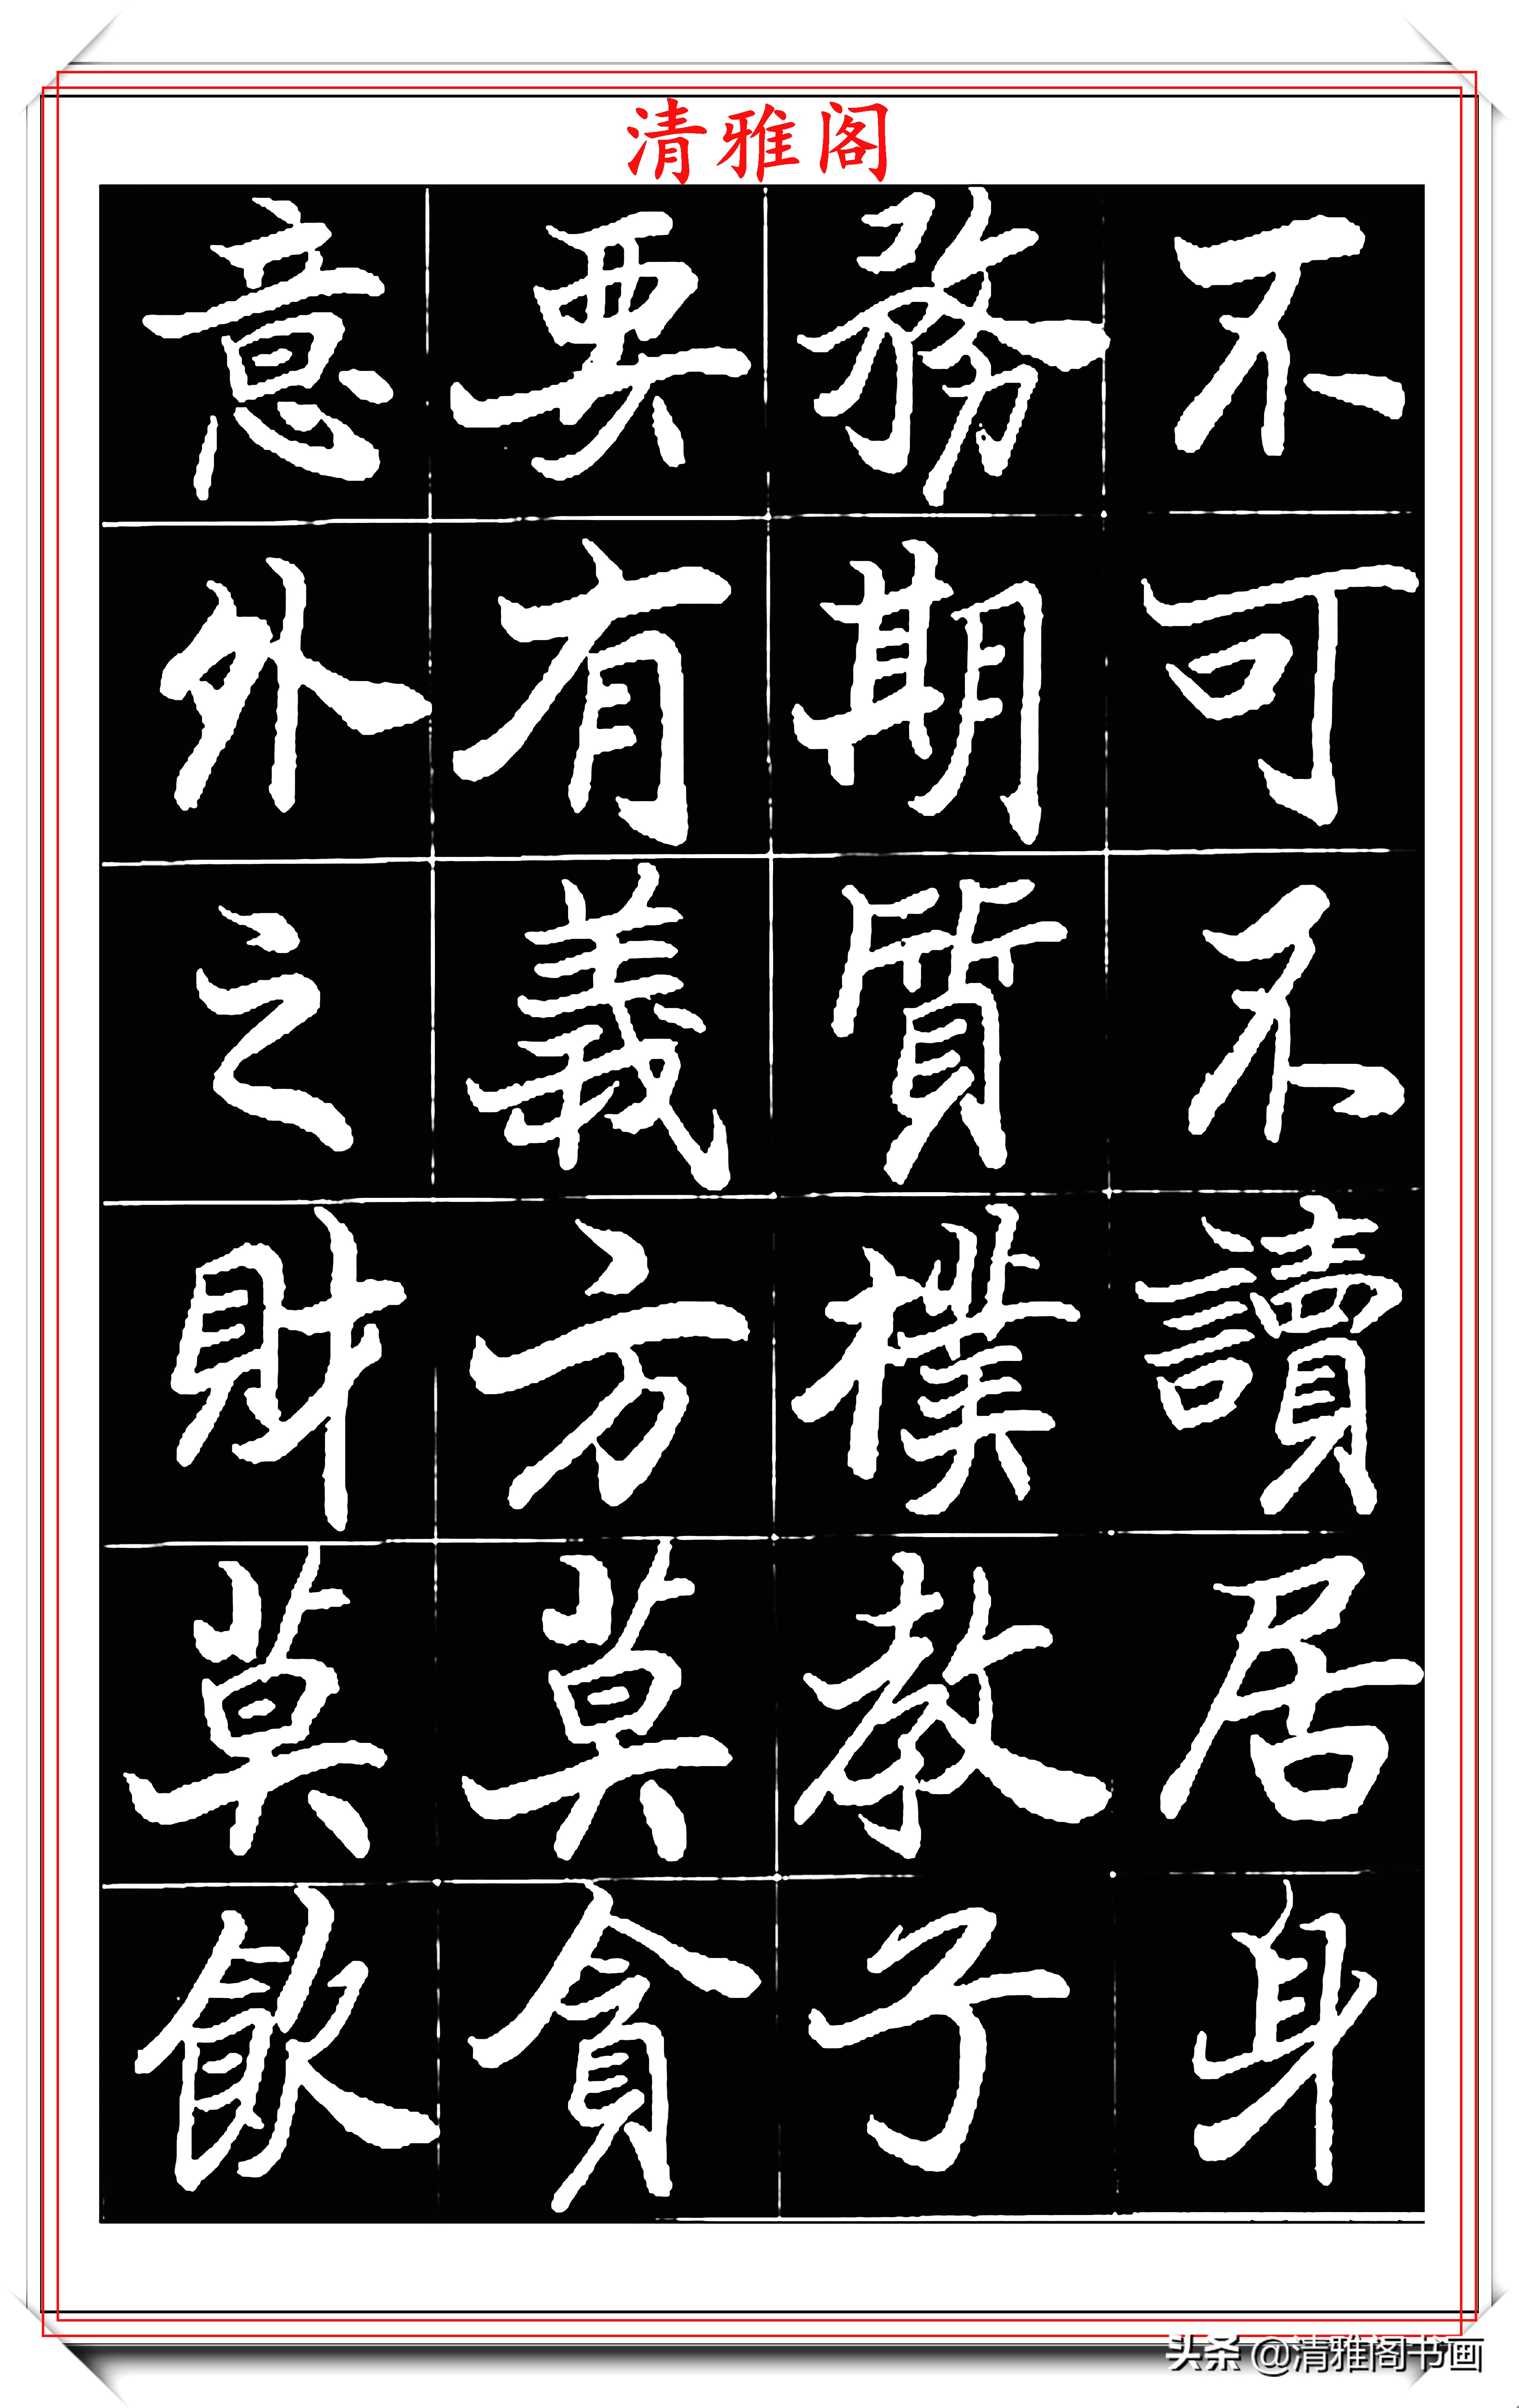 清雅阁
不可不讀居身
務期質樸教子
要有義方莫貪
意外之財莫飲
头条 @清雅阁书画